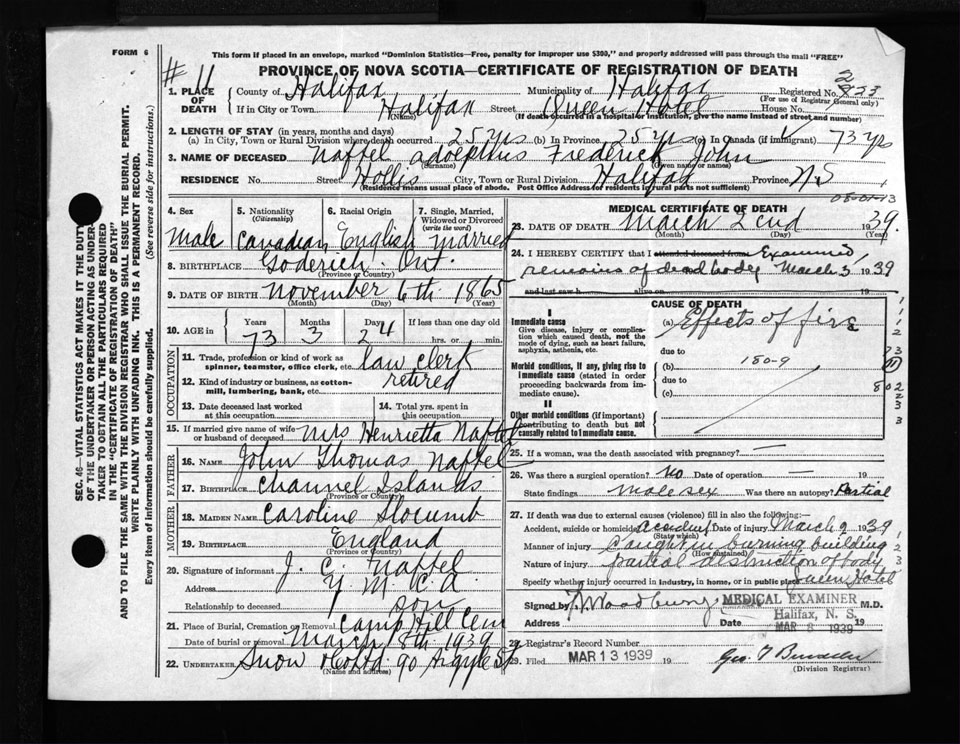 FORM 6
This form if placed in an envelope, marked "Dominion Statistics—Free, penalty for improper use $300," and properly addressed will pass through the mail "FREE"
# 11
PROVINCE OF NOVA SCOTIA—CERTIFICATE OF REGISTRATION OF DEATH
1. PLACE OF DEATH County of Halifax Municipality of Halifax Registered No. 823 2
(For use of Registrar General only)
If in City or Town Halifax Street Queen Hotel House No.
(Name) (If death occurred in a hospital or institution, give name instead of street and number)
2. LENGTH OF STAY (in years, months and days)
(a) In City, Town or Rural Division where death occurred 25 yrs (b) In Province 25 yrs (c) In Canada (if immigrant) 73 yrs
3. NAME OF DECEASED Naftel Adolphus Frederick John
(Surname) (Given name or names)
RESIDENCE No. Street Hollis City, Town or Rural Division Halifax Province N.S
(Residence means usual place of abode. Post Office Address for residents in rural parts not sufficient)
4. Sex
Male
5. Nationality
(Citizenship)
Canadian
6. Racial Origin
English
7. Single, Married, Widowed or Divorced
(write the word)
married
8. BIRTHPLACE Goderich Ont.
(Province or Country)
9. DATE OF BIRTH November 6th 1865
(Month) (Day) (Year)
10. AGE in Years Months Days If less than one day
73 3 24 hrs. or min.
OCCUPATION
11. Trade, profession or kind of work as spinner, teamster, office clerk, etc. law clerk
12. Kind of industry or business, as cotton-mill, lumbering, bank, etc. retired
13. Date deceased last worked at this occupation
14. Total yrs. spent in this occupation
15. If married give name of wife or husband of deceased Mrs Henrietta Naftel
FATHER
16. Name John Thomas Naftel
17. Birthplace Channel Islands
(Province or Country)
MOTHER
18. Maiden Name Caroline Slocumb
19. Birthplace England
(Province or Country)
20. Signature of informant J. C. Naftel
Address Y.M.C.A.
Relationship to deceased son
21. Place of Burial, Cremation or Removal Camp Hill Cem
Date of burial or removal March 8th 1939
22. UNDERTAKER Snow & Co Ltd 90 Argyle St
(Name and address)
MEDICAL CERTIFICATE OF DEATH
23. DATE OF DEATH March 2cnd 1939.
(Month) (Day) (Year)
24. I HEREBY CERTIFY that I attended deceased from Examined
remains of dead body March 3, 1939
and last saw h alive on 19
CAUSE OF DEATH
I
Immediate cause
Give disease, injury or complication which caused death, not the mode of dying, such as heart failure, asphyxia, asthenia, etc.
(a) Effects of fire
due to
Morbid conditions, if any, giving rise to immediate cause (stated in order proceeding backwards from immediate cause)
(b) 180-9
due to
(c)
II
Other morbid conditions (if important) contributing to death but not causally related to immediate cause.
25. If a woman, was the death associated with pregnancy? —
26. Was there a surgical operation? No Date of operation — 19
State findings Male sex Was there an autopsy? Partial
27. If death was due to external causes (violence) fill in also the following:—
Accident, suicide or homicide? accident Date of injury March 2 1939
(State which)
Manner of injury Caught in burning building
(How sustained)
Nature of injury partial destruction of body
Specify whether injury occurred in industry, in home, or in public place Queen Hotel
Signed by Woodbury M.D.
MEDICAL EXAMINER
Halifax, N. S.
Address Date MAR 8 1939 19
28. Registrar's Record Number
29. Filed MAR 13 1939 19
(Division Registrar)
SEC. 46—VITAL STATISTICS ACT MAKES IT THE DUTY OF THE UNDERTAKER OR PERSON ACTING AS UNDERTAKER TO OBTAIN ALL THE PARTICULARS REQUIRED IN THE "CERTIFICATE OF REGISTRATION OF DEATH" AND TO FILE THE SAME WITH THE DIVISION REGISTRAR WHO SHALL ISSUE THE BURIAL PERMIT.
WRITE PLAINLY WITH UNFADING INK. THIS IS A PERMANENT RECORD.
Every item of information should be carefully supplied. (See reverse side for instructions.)